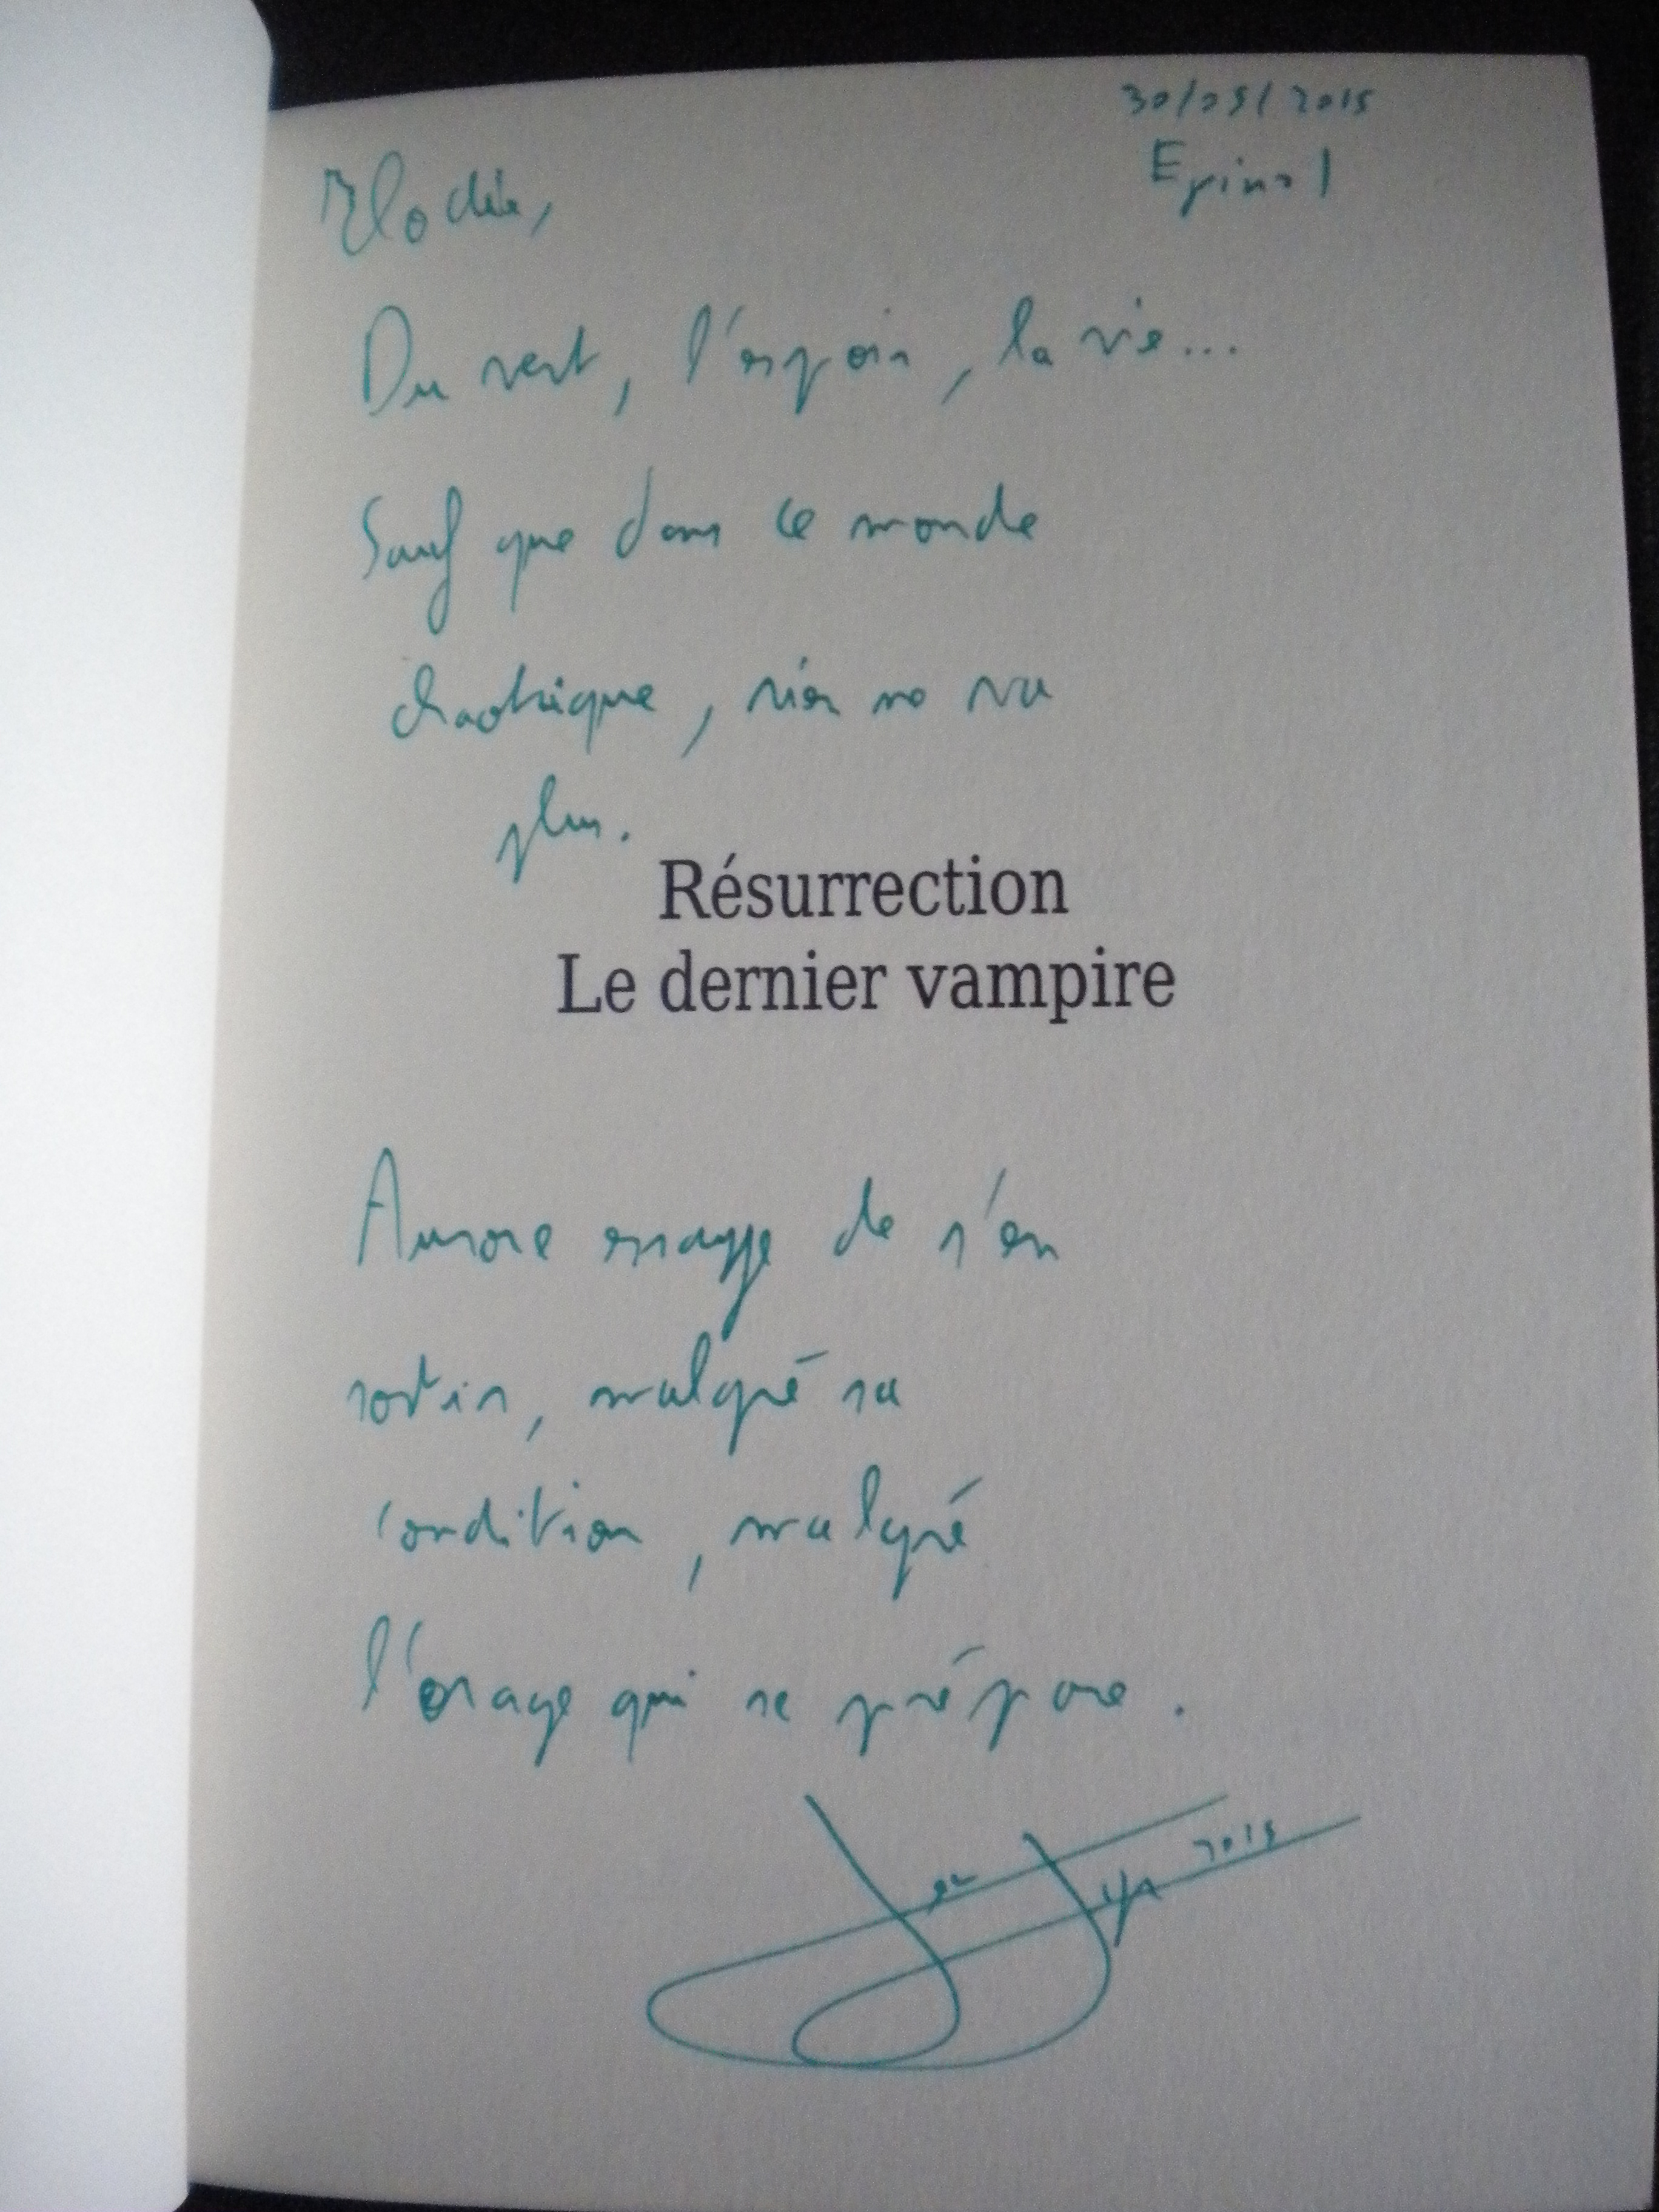 30/05/2015
Epinal
Elodie,
Du vert, l'espoir, la vie...
Sauf que dans ce monde
chaotique, rien ne va
plus.
Résurrection
Le dernier vampire
Aurore essaye de s'en
sortir, malgré sa
condition, malgré
l'orage qui se prépare.
2015